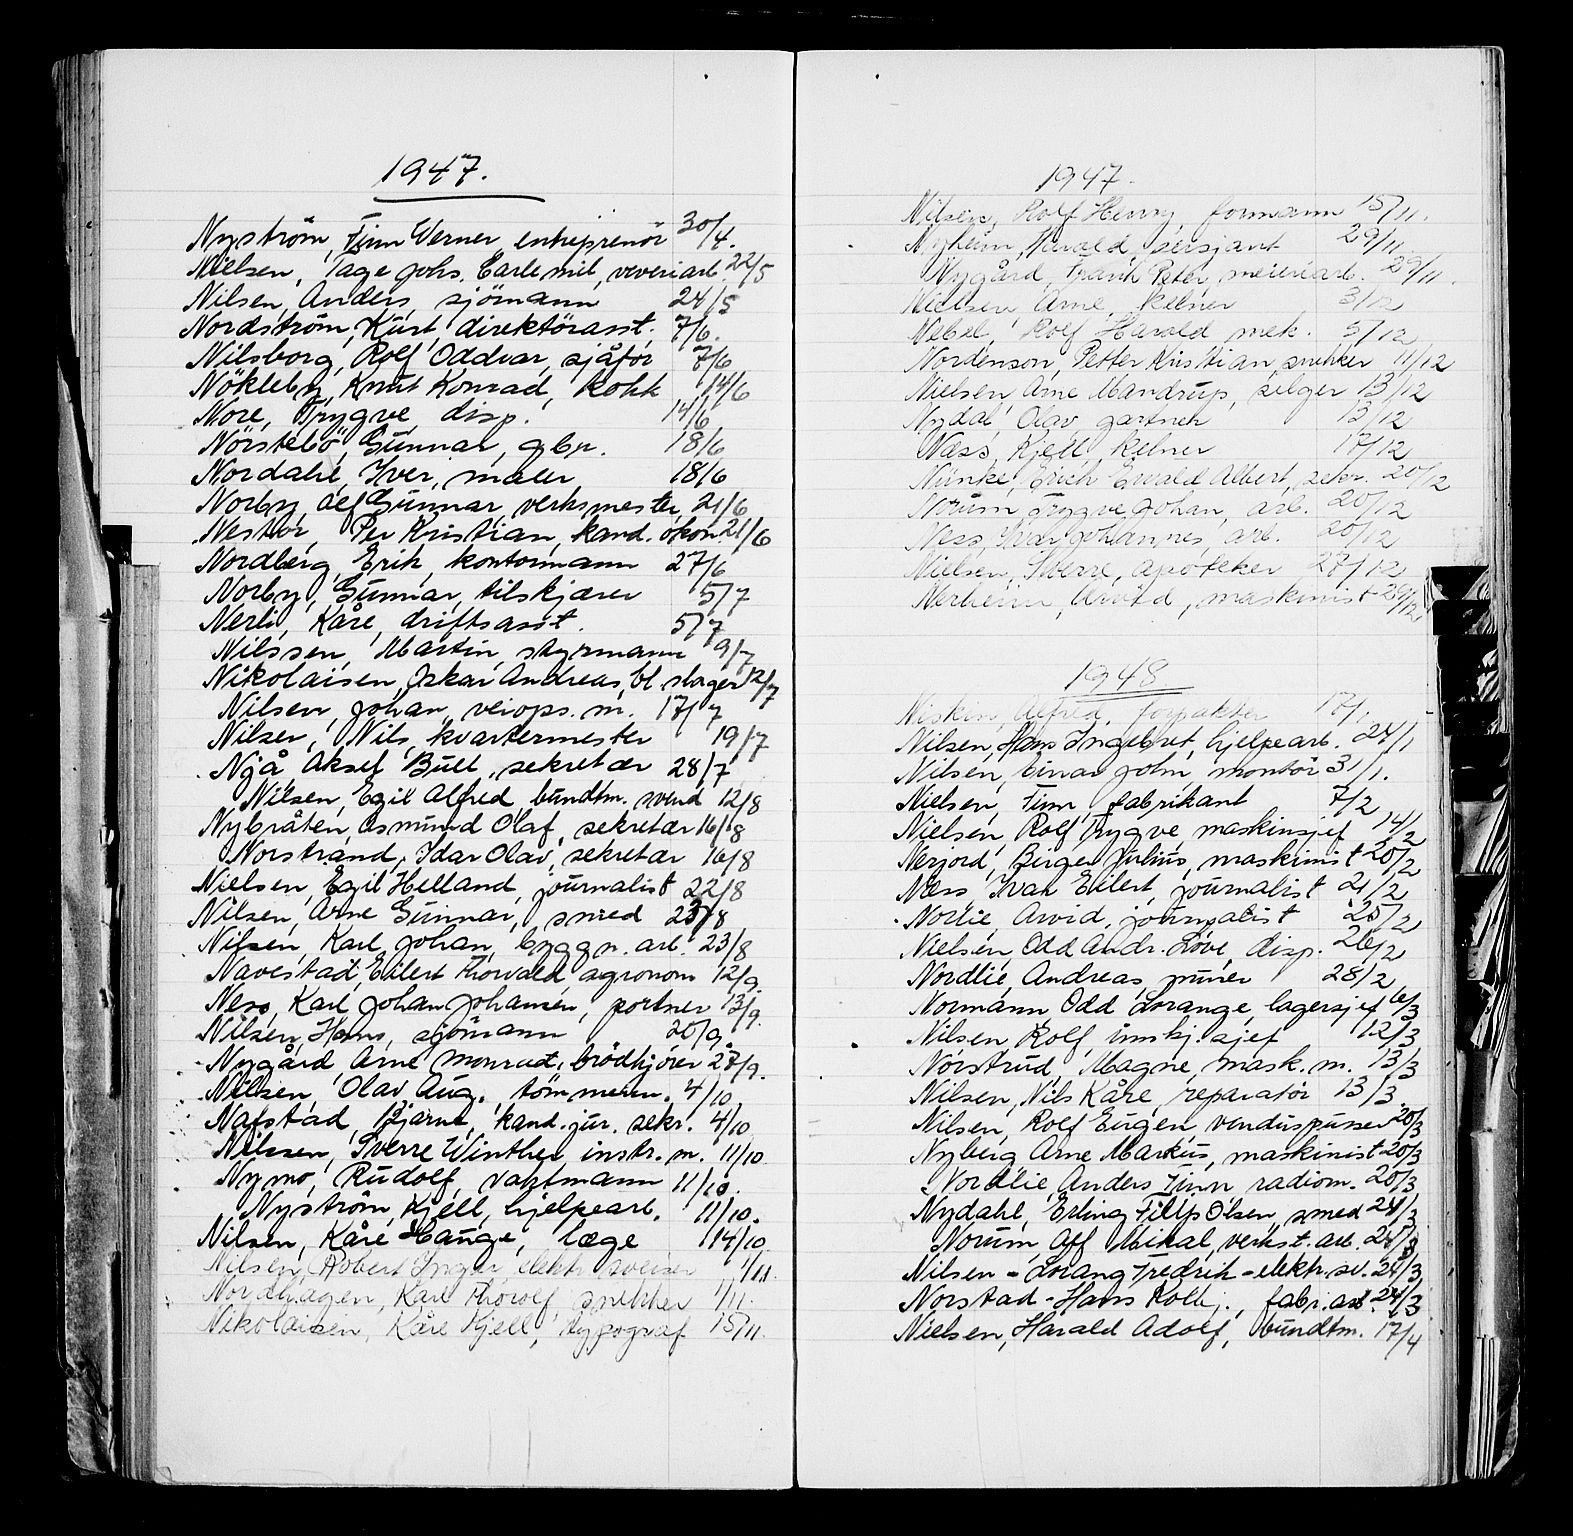 1947.
Nyström, Finn Werner, entreprenör 30/4.
Nielsen, Tage Johs. Carle mil, veveriarb. 22/5
Nilsen, Anders, sjömann 24/5
Nordström, Kurt, direktörasst. 7/6.
Nilsborg, Rolf Oddvar, sjåför 7/6
Nökleby, Knut Konrad, kokk 14/6
Nore, Trygve, disp. 14/6
Nörstebö, Gunnar, gbr. 18/6
Nordahl, Iver, maler 18/6
Norby, Leif Gunnar, verksmester 21/6
Nestor, Per Kristian, kand. ökon. 21/6
Nordberg, Erik, kontormann 27/6
Norby, Gunnar, tilskjærer 5/7
Nerli, Kåre, driftsasst. 5/7
Nilssen, Martin, styrmann 9/7
Nikolaisen, Oskar Andreas, bl. slager 12/7
Nilsen, Johan, veiops. m. 17/7
Nilsen, Nils, kvartermester 19/7
Njå, Aksel Bull, sekretær 28/7
Nilsen, Egil Alfred, buntm. svend 12/8
Nybråten, Asmund Olaf, sekretær 16/8
Norstrand, Idar Olav, sekretær 16/8
Nielsen, Egil Helland, journalist 22/8
Nilsen, Arne Gunnar, smed 23/8
Nilsen, Karl Johan, byggn. arb. 23/8
Navestad, Eilert Thorvald, agronom 12/9.
Ness, Karl Johan Johansen, portner 13/9.
Nilsen, Hans, sjömann 20/9.
Nygård, Arne Monrad, brödkjörer 27/9.
Nilsen, Olav Aug., tömmerm. 4/10
Nafstad, Bjarne, kand. jur. sekr. 4/10
Nilssen, Sverre Winther, instr. m. 11/10
Nymo, Rudolf, vaktmann 11/10.
Nyström, Kjell, hjelpearb. 11/10.
Nilsen, Kåre Hauge, læge 14/10
Nilsen, Robert Inger, elektr. sveiser 1/11
Nordhagen, Karl Thorolf, snekker 1/11.
Nikolaisen, Kåre Kjell, typograf 15/11.
1947.
Nilsen, Rolf Henry, formann 15/11.
Nyheim, Harald, sersjant 29/11
Nygård, Frank Peter, meieriarb. 29/11.
Nielsen, Arne, kelner 3/12
Nebel, Rolf Harald, mek. 5/12
Nordenson, Petter Kristian, snekker 11/12
Nielsen, Arne Mandrup, selger 13/12
Nydal, Olav, gartner 13/12
Næss, Kjell, kelner 17/12
Nünke, Erich Ewald Albert, sekr. 20/12
Norum, Trygve Johan, arb. 20/12
Ness, Ivar Johannes, arb. 20/12
Nielsen, Sverre, apoteker 27/12
Nerheim, Arvid, maskinist 29/12
1948.
Niskin, Alfred, forpakter 17/1
Nilsen, Hans Ingebret, hjelpearb. 24/1
Nilsen, Einar John, montör 31/1.
Nielsen, Finn, fabrikant 7/2
Nielsen, Rolf Trygve, maskinsjef 14/2
Nerjord, Birger Julius, maskinist 20/2
Næss, Ivar Eilert, journalist 21/2
Norlie, Arvid, journalist 25/2
Nielsen, Odd Andr. Löve, disp. 26/2
Nordlie, Andreas, murer 28/2
Normann, Odd Lorange, lagersjef 6/3
Nilsen, Rolf, innkj. sjef 12/3
Norstrud, Magne, mask. m. 13/3
Nilsen, Nils Kåre, reparatör 13/3.
Nilsen, Rolf Eugen, vinduspusser 20/3
Nyberg, Arne Markus, maskinist 20/3
Nordlie, Anders Finn, radiom. 20/3
Nydahl, Erling Fillip Olsen, smed 24/3
Norum, Alf Mikal, verkst. arb. 24/3
Nilsen - Lorang Fredrik - elektr. sv. 24/3
Norstad - Hans Kolbj., fabr. arb. 24/3
Nielsen, Harald Adolf, buntm. 17/4